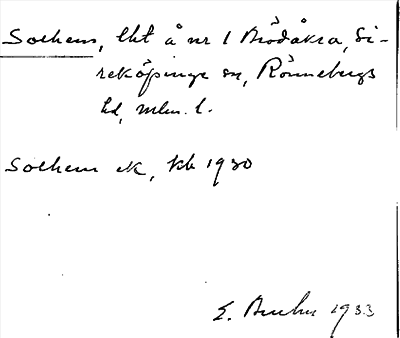 Solhem, lht å nr 1 Brödåkra, Si-
reköpinge sn, Rönnebergs
hd, mlm. l.
Solhem ek, kb 1930
E. 1933